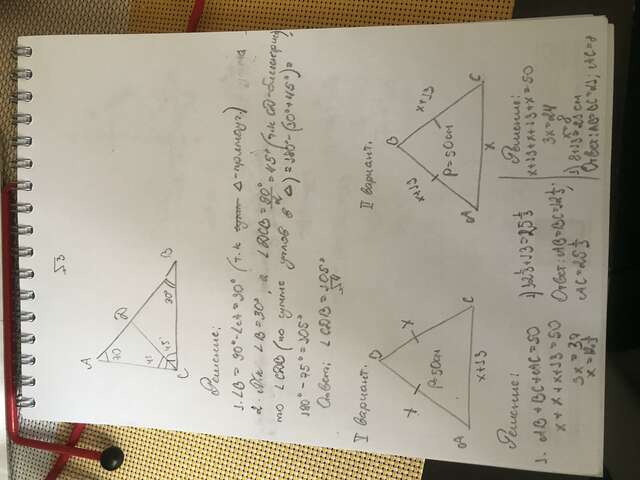 √3
A
D
B
C
70
30°
45
45
Решение:
1. ∠B = 90° - ∠A = 30° (т.к. △-прямоуг.)
2. ∠B = 30°, а ∠DCB = 90° = 45° (т.к. CD-биссектриса)
то ∠CDB (по сумме углов в △) = 180° - (30° + 45°) =
180° - 75° = 105°
Ответ: ∠CDB = 105°
I вариант.
B
x
x
P=50см
A
x+13
C
Решение:
1. AB + BC + AC = 50
x + x + x + 13 = 50
3x = 37
x = 12⅓
2) 12⅓ + 13 = 25⅓
Ответ: AB = BC = 12⅓;
AC = 25⅓
II вариант.
B
x+13
x+13
P=50см
A
x
C
Решение:
x+13+x+13+x=50
3x=24
x=8
2) 8+13=21 см
Ответ: AB=BC=21; AC=8